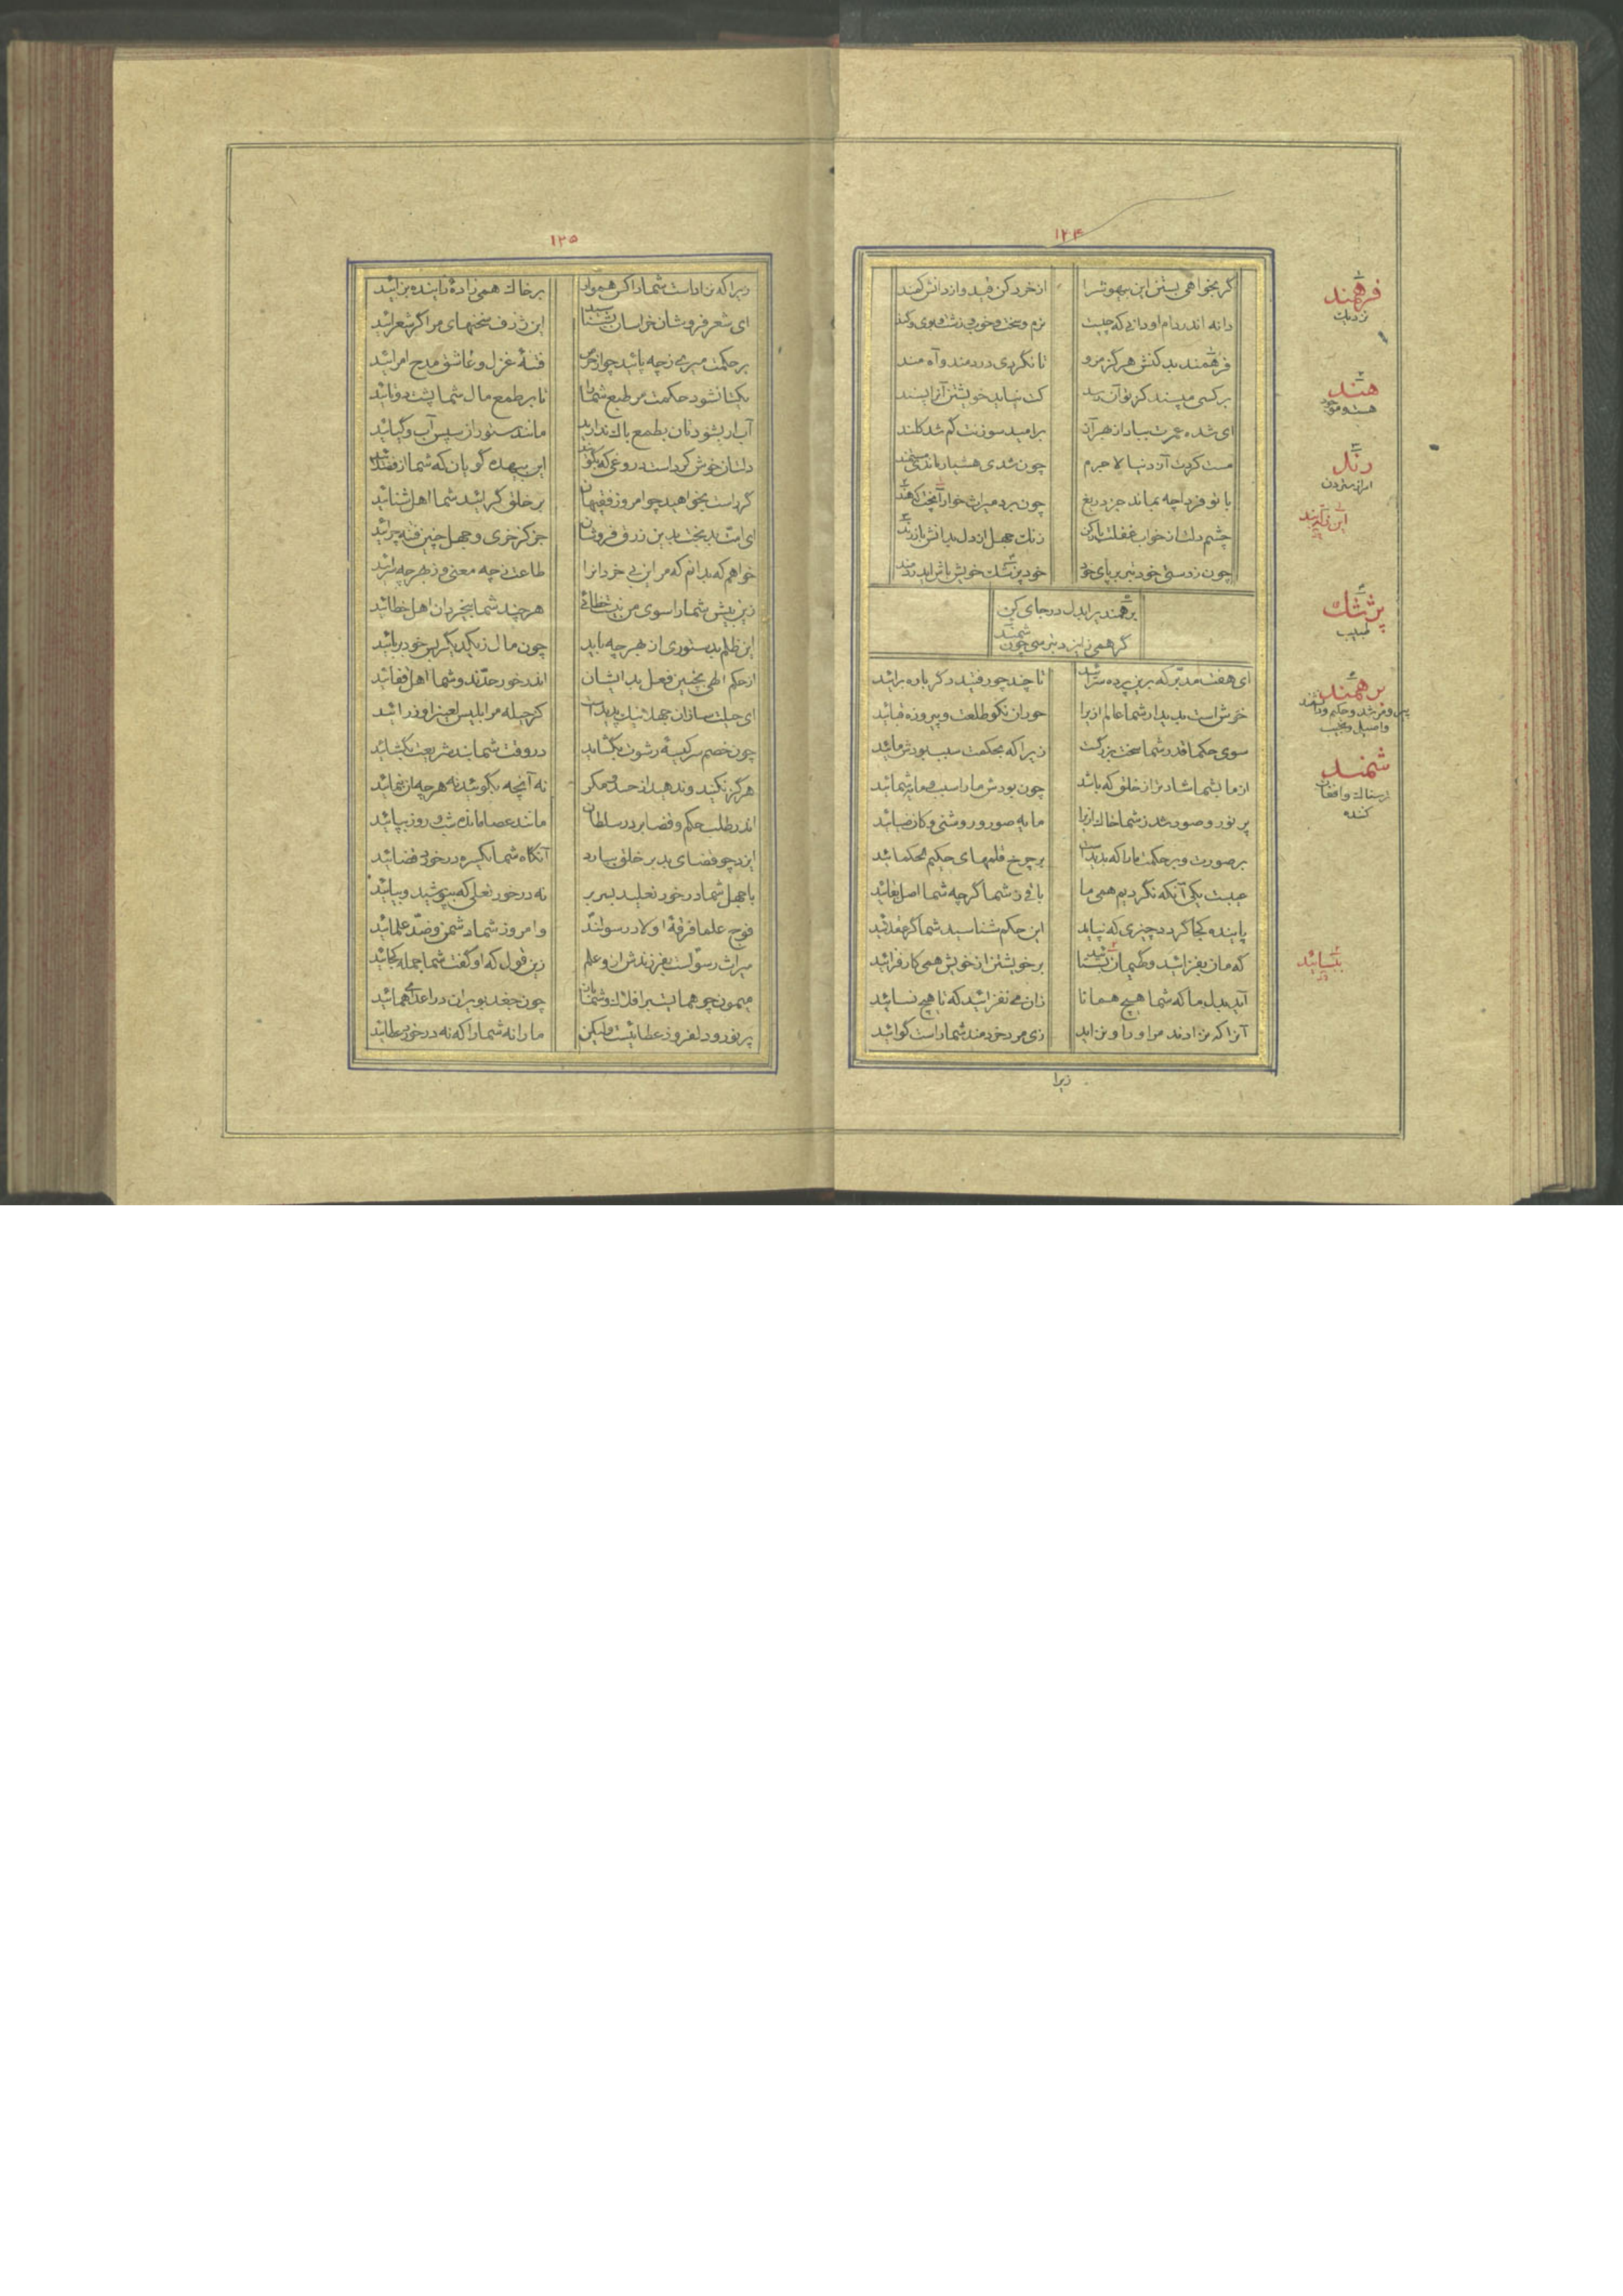 ۱۲۴
گر بخواهی بستن این بیهوش را
از خرد کن قید و از دانش کمند
دانه اندر دام او دانی که چیست
نرم و سخت و خوب و زشت و بوی و کند
فرهمند بد کنش هرگز مرو
تا نگردی دردمند و آه مند
بر کسی مپسند کز تو آن رسد
کت نیاید خویشتن آنرا پسند
ای شده عمرت بباد از بهر آن
بر امید سوزنت کم شد کلند
مست کردت آز دنیا لاجرم
چون شدی هشیار ماندی مستمند
با تو فردا چه بماند جز دریغ
چون برد میراث خوار
چشم دلت از خواب غفلت باز کن
زنگ جهل از دل بدانش باز رند
چون ز دستی خود تبر بر پای خود
خود پزشک خویش باش ای دردمند
برهمند
گر همی زایزد بترسی چون شمند
ای هفت مدبر که برین پرده سرائید
تا چند چو رفتید دگر باره برائید
خوش است بدیدار شما عالم ازیرا
حوران نکو طلعت و پیروزه قبائید
سوی حکما قدر شما سخت بزرگست
زیرا که بحکمت سبب بودش مائید
از ما بشما شادتر از خلق که باشد
چون بودش ما را سبب و مایه شمائید
پر نور و صور شد ز شما خاک ازیرا
مایه صور و روشنی و کان ضیائید
بر صورت و بر حکمت ما را که بدیدست
بر چرخ قلمهای حکیم الحکمائید
عیبت یکی آنکه نگردیم همی ما
باقی ز شما گرچه شما اصل بقائید
پاینده کجا گردد چیزی که نپاید
این حکم شناسید شما گر عقلائید
که مان بفزائید و گهی‌مان
بر خویشتن از خویش همی کار فزائید
آید بدل ما که شما هیچ همانا
زان می نفزائید که تا هیچ نسائید
آنرا که نزادند مر او را و نزاید
زی مرد خردمند شما راست گوائید
زیرا
فرهمند
نزدیک
هند
هست و موجود
رند
امر از سترون
پزشک
طبیب
برهمند
شمند
ترسناک و افغان
کننده
۱۲۵
زیرا که نزادست شما را کس هموار
بر خاک همی زادهٔ زاینده بزائید
ای شعر فروشان خراسان بشناسید
این ژرف سخنهای مرا گر شعرائید
بر حکمت میری ز چه یابید چو از حرص
فتنهٔ غزل و عاشق مدح امرائید
یکتا نشود حکمت مر طبع شما را
تا بر طمع مال شما پشت دوتائید
آب ار بشودتان بطمع باک ندارید
مانند ستور از سپس آب و گیائید
دلتان خوش گردد بدروغی که بگویند
این بیهده گویان که شما از فضلائید
گر راست بخواهید چو امروز فقیهان
بر خلق گر ائید شما اهل ثنائید
ای امت بدبخت بدین زرق فروشان
جز کز خری و جهل چنین فتنه چرائید
خواهم که بدانم که مر این بی خردان را
طاعت ز چه معنی و ز بهر چه سرائید
زین بیش شما را سوی من نیست خطائی
هرچند شما بیخردان اهل خطائید
این ظلم بدستوری از بهر چه باید
چون مال ز یکدیگر بس خود بربائید
از حکم الهی بچنین فعل بد ایشان
اندر خور حدند و شما اهل قفائید
ای حیلت سازان جهلا نیک پدیدست
کز حیله مر ابلیس لعین را وزرائید
چون خصم سر کیسهٔ رشوت بگشاید
در وقت شما بند شریعت بگشائید
هرگز نکنید و ندهید از حسد و مکر
نه آنچه بگوئید نه هرچه از نمائید
اندر طلب حکم و قضا بر در سلطان
مانند عصا مانده شب و روز بپائید
ایزد چو قضای بد بر خلق ببارد
آنگاه شما یکسره در خورد قضائید
با جهل شما در خور نعلید بسر بر
نه در خور نعلی که بپوشید و بیائید
فوج علما فرقهٔ اولاد رسولند
و امروز شما دشمن و ضد علمائید
میراث رسولست بفرزندش ازو علم
زین قول که او گفت شما جمله کجائید
میمون چو همایست بر افلاک و شمایان
چون جغد بویران در اعدای همائید
پر نور و دلفروز عطائیست ولیکن
ما را نه شما را که نه در خورد عطائید